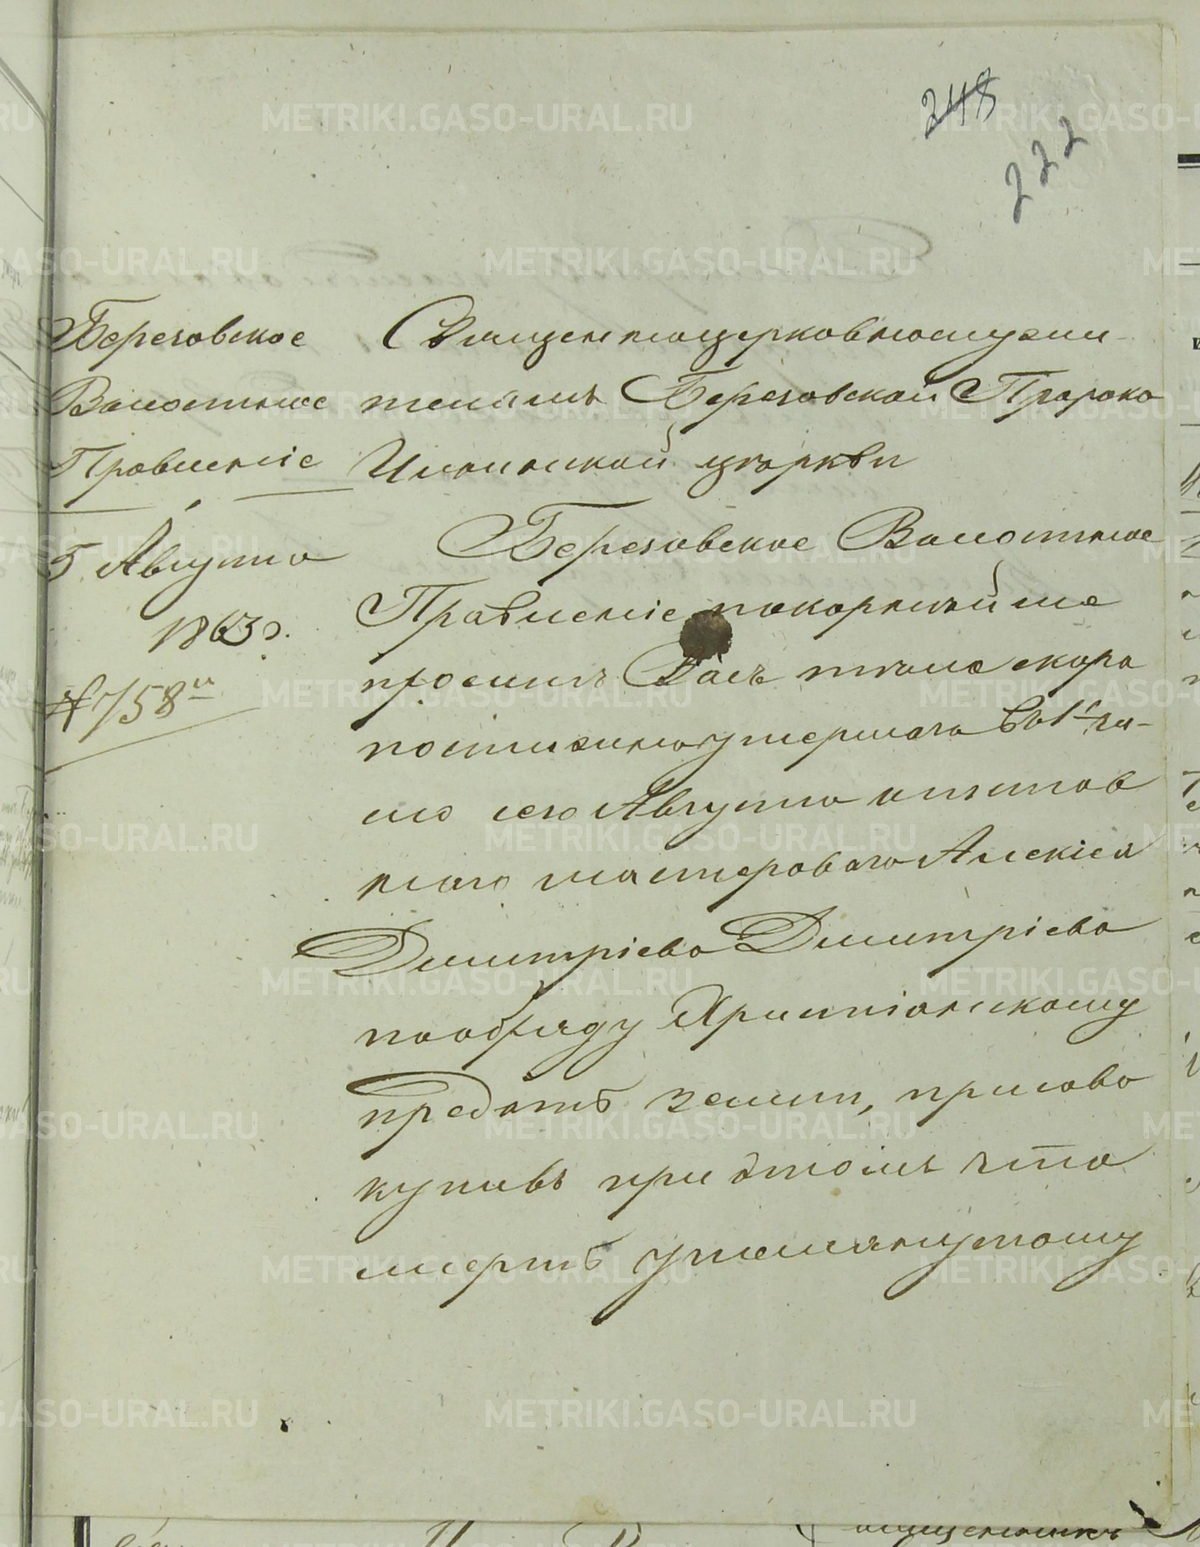 248
222
Березовское
Волостное
Правленіе
5 Августа
1863 г.
№ 758й
Священноцерковнослужи-
телямъ Березовской Пророко
Ильинской цѣркви
Березовское Волостное
Правленіе покорнѣйше
проситъ Васъ тѣло скоро
постижноумершаго въ 1е чи-
сло сего Августа отстав
наго мастероваго Алексіея
Дмитріева Дмитріева
по обряду Христіанскому
предать земли, присово
купивъ при этомъ что
мерть упомянутому
METRIKI.GASO-URAL.RU